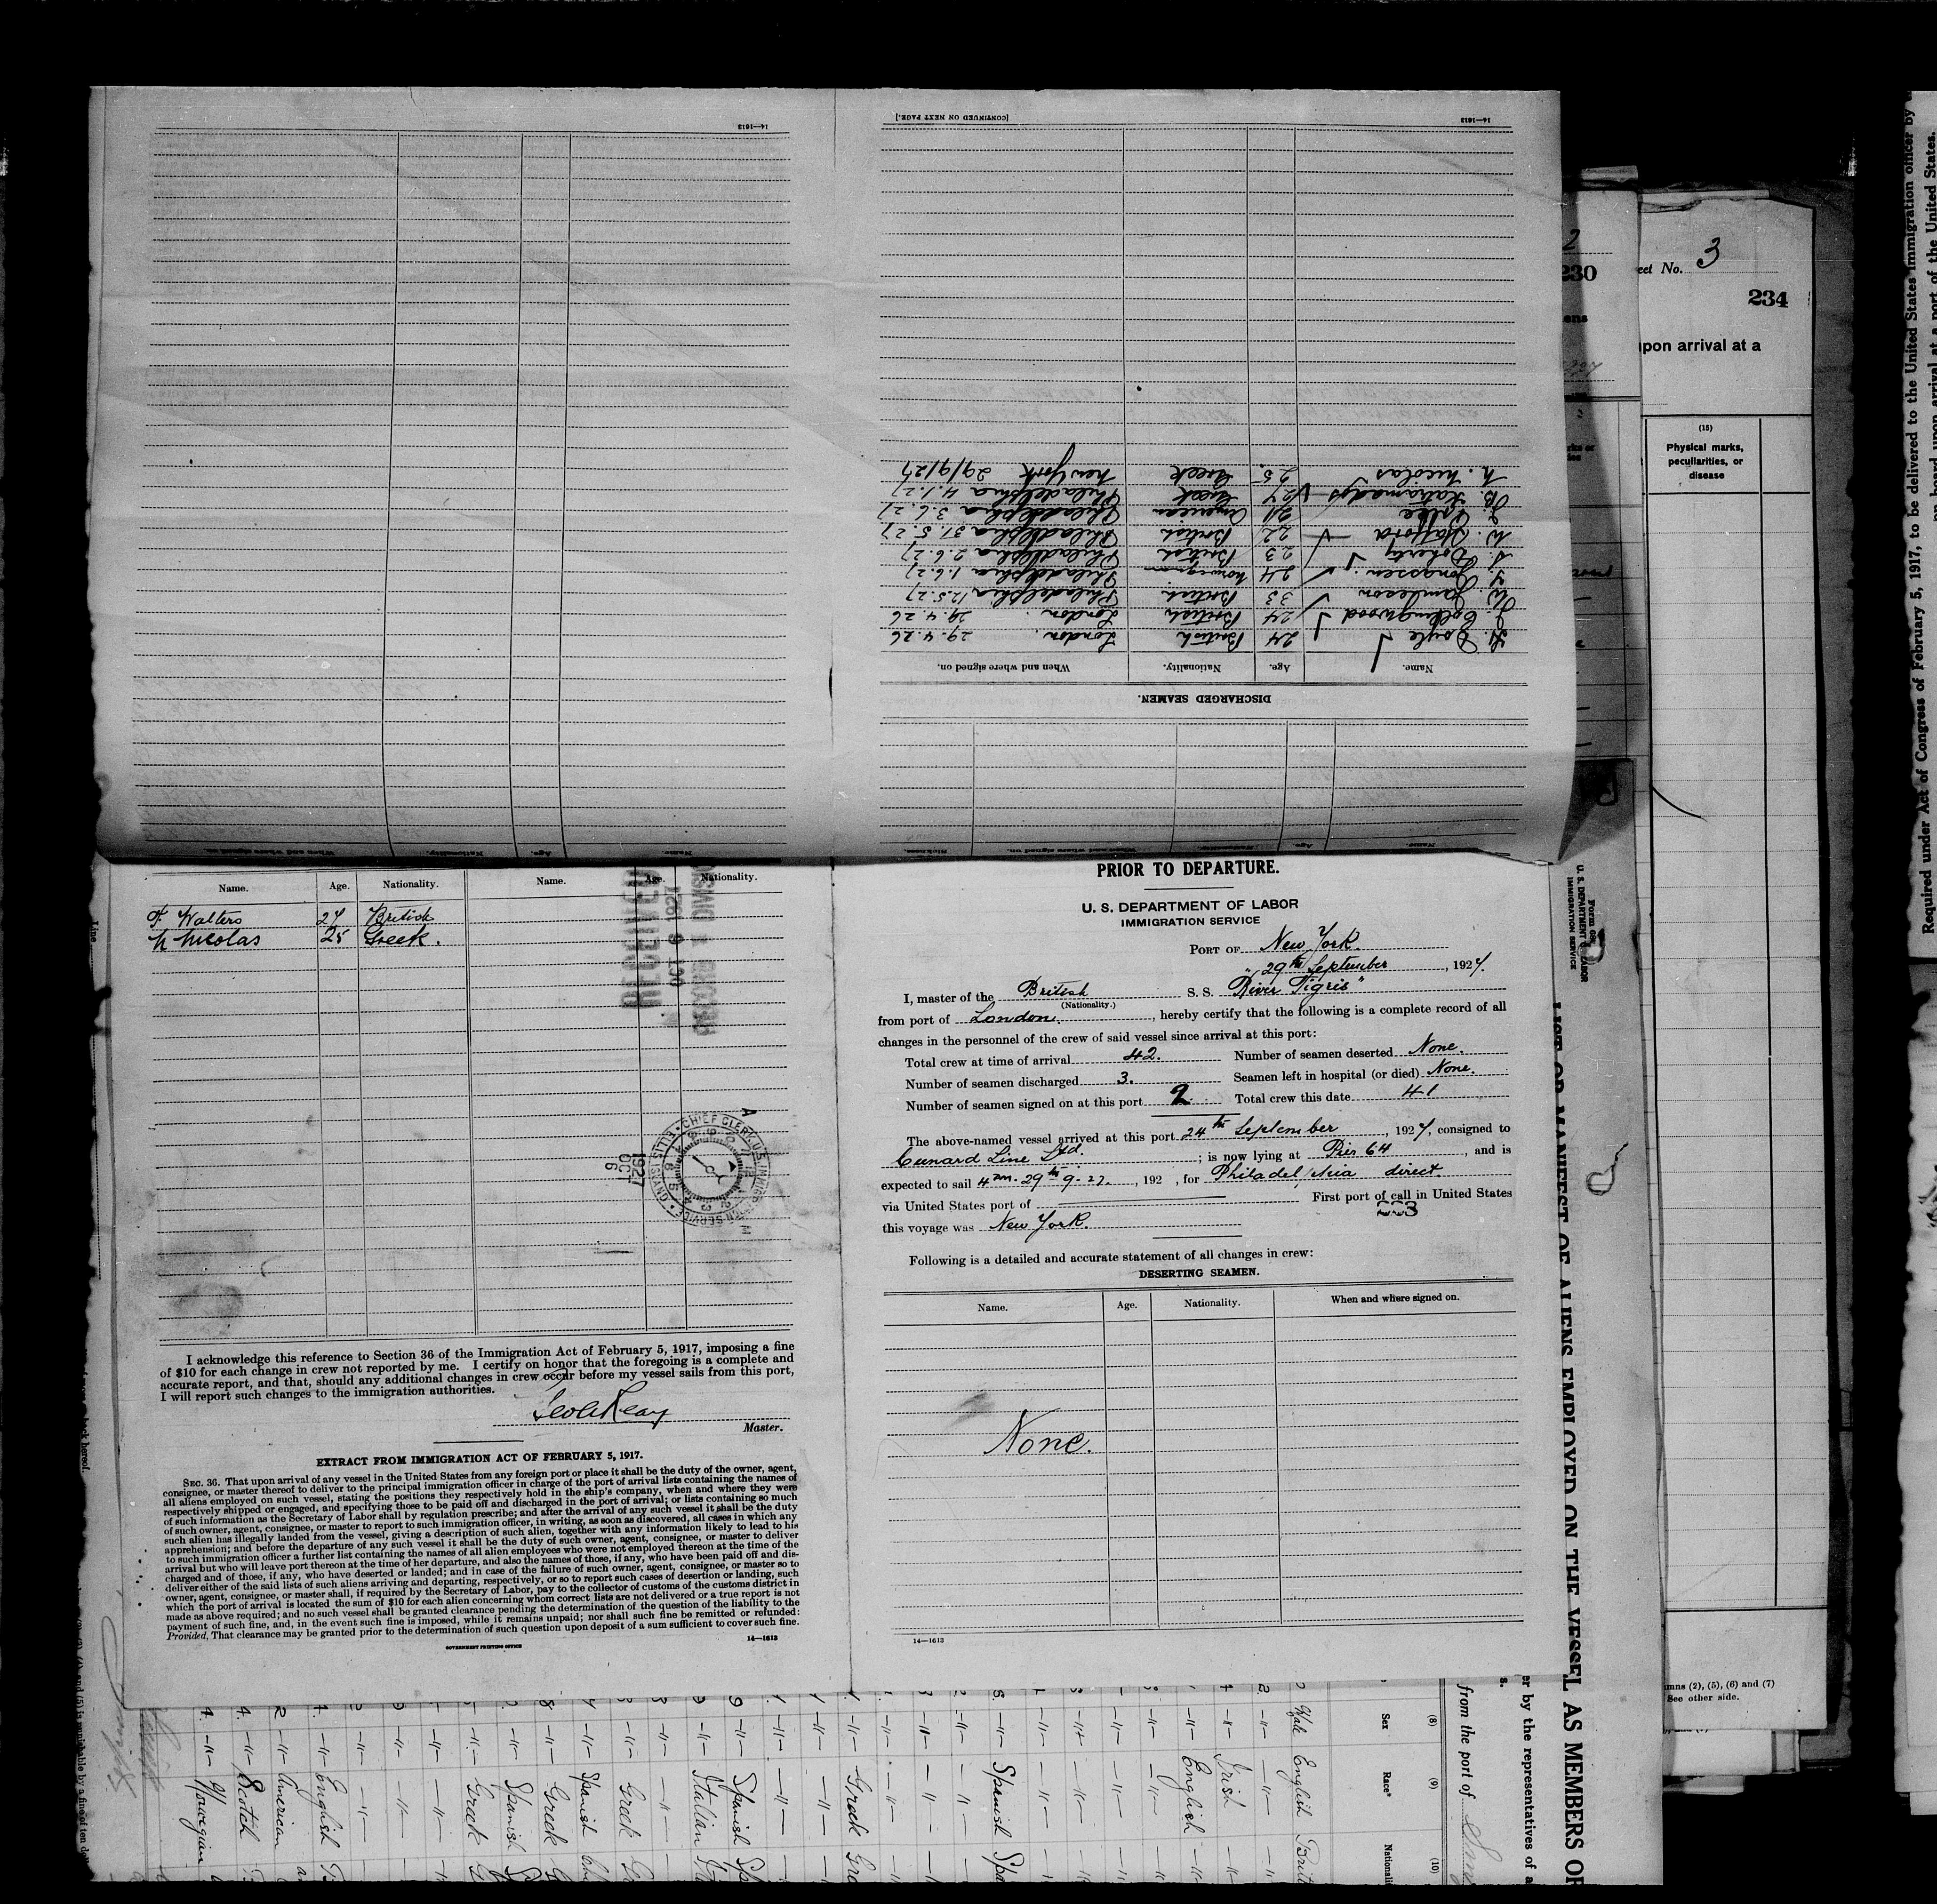 14—1613
[CONTINUED ON NEXT PAGE.]
14—1613
DISCHARGED SEAMEN.
Name. Age. Nationality. When and where signed on.
H. Doyle 24 British London. 29.4.26
J. Collingwood 24 British London. 29.4.26
W. Jamieson 33 British Philadelphia 12.5.27
Jonassen 24 Norwegian Philadelphia 1.6.27
Doherty 23 British Philadelphia 2.6.27
W. Stafford 22 British Philadelphia 31.5.27
21 American Philadelphia 3.6.27
B. 27 Greek Philadelphia 4.1.27
N. Nicolas 25. Greek New York 29/9/27
Name. Age. Nationality. When and where signed on.
Name. Age. Nationality. When and where signed on. Sickness.
Name. Age. Nationality. Name. Age. Nationality.
F. Walters 27 British
N Nicolas 25 Greek.
RECEIVED
OCT 6 1927
CHIEF CLERK U.S. IMMIGRATION SERVICE • ELLIS ISLAND •
1927
OCT
6
A
M
I acknowledge this reference to Section 36 of the Immigration Act of February 5, 1917, imposing a fine
of $10 for each change in crew not reported by me. I certify on honor that the foregoing is a complete and
accurate report, and that, should any additional changes in crew occur before my vessel sails from this port,
I will report such changes to the immigration authorities.
Master.
EXTRACT FROM IMMIGRATION ACT OF FEBRUARY 5, 1917.
SEC. 36. That upon arrival of any vessel in the United States from any foreign port or place it shall be the duty of the owner, agent,
consignee, or master thereof to deliver to the principal immigration officer in charge of the port of arrival lists containing the names of
all aliens employed on such vessel, stating the positions they respectively hold in the ship's company, when and where they were
respectively shipped or engaged, and specifying those to be paid off and discharged in the port of arrival; or lists containing so much
of such information as the Secretary of Labor shall by regulation prescribe; and after the arrival of any such vessel it shall be the duty
of such owner, agent, consignee, or master to report to such immigration officer, in writing, as soon as discovered, all cases in which any
such alien has illegally landed from the vessel, giving a description of such alien, together with any information likely to lead to his
apprehension; and before the departure of any such vessel it shall be the duty of such owner, agent, consignee, or master to deliver
to such immigration officer a further list containing the names of all alien employees who were not employed thereon at the time of the
arrival but who will leave port thereon at the time of her departure, and also the names of those, if any, who have been paid off and dis-
charged and of those, if any, who have deserted or landed; and in case of the failure of such owner, agent, consignee, or master so to
deliver either of the said lists of such aliens arriving and departing, respectively, or so to report such cases of desertion or landing, such
owner, agent, consignee, or master shall, if required by the Secretary of Labor, pay to the collector of customs of the customs district in
which the port of arrival is located the sum of $10 for each alien concerning whom correct lists are not delivered or a true report is not
made as above required; and no such vessel shall be granted clearance pending the determination of the question of the liability to the
payment of such fine, and, in the event such fine is imposed, while it remains unpaid; nor shall such fine be remitted or refunded:
Provided, That clearance may be granted prior to the determination of such question upon deposit of a sum sufficient to cover such fine.
GOVERNMENT PRINTING OFFICE 14—1613
PRIOR TO DEPARTURE.
U. S. DEPARTMENT OF LABOR
IMMIGRATION SERVICE
PORT OF New York.
29th September, 1927.
I, master of the British S. S. "River Tigris"
(Nationality.)
from port of London, hereby certify that the following is a complete record of all
changes in the personnel of the crew of said vessel since arrival at this port:
Total crew at time of arrival 42. Number of seamen deserted None.
Number of seamen discharged 3. Seamen left in hospital (or died) None.
Number of seamen signed on at this port 2 Total crew this date 41
The above-named vessel arrived at this port 24th September, 1927, consigned to
Cunard Line Ltd. ; is now lying at Pier 64, and is
expected to sail 4 am. 29th 9-27., 192 , for Philadelphia direct
via United States port of First port of call in United States
this voyage was New York.
233
Following is a detailed and accurate statement of all changes in crew:
DESERTING SEAMEN.
Name. Age. Nationality. When and where signed on.
None.
14—1613
2
230
eet No. 3
234
upon arrival at a
(15)
Physical marks,
peculiarities, or
disease
mns (2), (5), (6) and (7)
See other side.
Required under Act of Congress of February 5, 1917, to be delivered to the United States Immigration officer by
on board upon arrival at a port of the United States.
U. S. DEPARTMENT OF LABOR
IMMIGRATION SERVICE
LIST OR MANIFEST OF ALIENS EMPLOYED ON THE VESSEL AS MEMBERS OF
er by the representatives of a
from the port of
(8) Sex
(9) Race*
(10) Nationali
Male English Brit
Irish
English
Spanish Spa
Greek Gre
Spanish Spa
Italian
Greek
Spanish
Greek
Spanish
Greek
English
American
Scotch
Norwegian